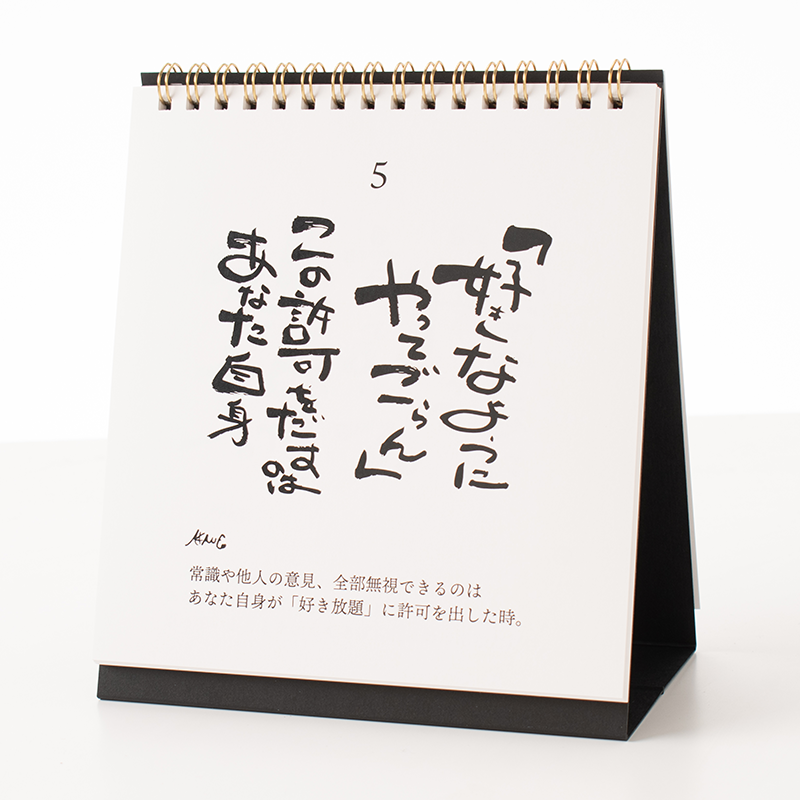 5
「好きなように
やってごらん」
この許可をだすのは
あなた自身
常識や他人の意見、全部無視できるのは
あなた自身が「好き放題」に許可を出した時。